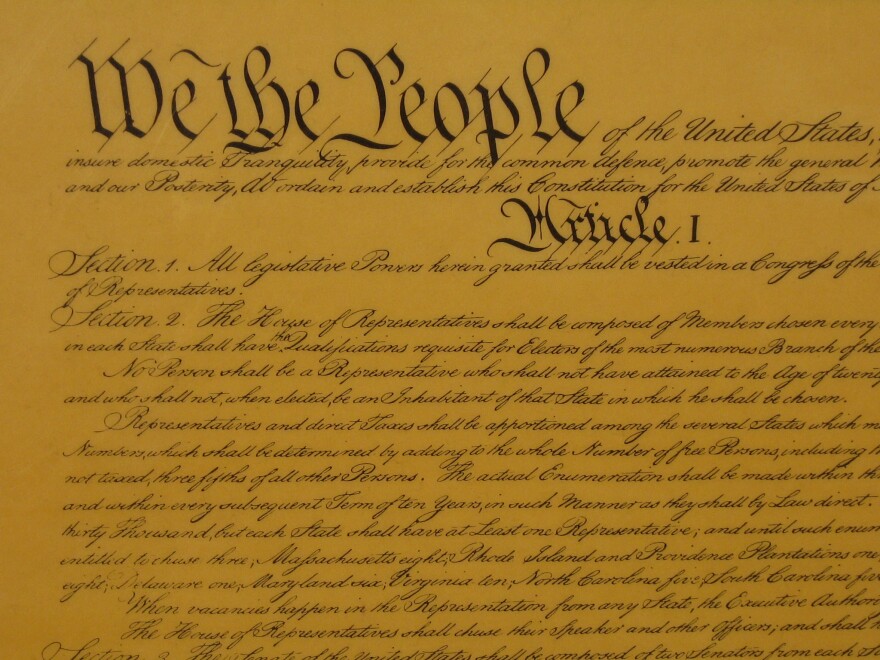 We the People of the United States,
insure domestic Tranquility, provide for the common defence, promote the general
and our Posterity, do ordain and establish this Constitution for the United States of
Article. I.
Section. 1. All legislative Powers herein granted shall be vested in a Congress of the
of Representatives.
Section. 2. The House of Representatives shall be composed of Members chosen every
in each State shall have the Qualifications requisite for Electors of the most numerous Branch of the
No Person shall be a Representative who shall not have attained to the Age of twenty
and who shall not, when elected, be an Inhabitant of that State in which he shall be chosen.
Representatives and direct Taxes shall be apportioned among the several States which
Numbers, which shall be determined by adding to the whole Number of free Persons, including
not taxed, three fifths of all other Persons. The actual Enumeration shall be made within
and within every subsequent Term of ten Years, in such Manner as they shall by Law direct.
thirty Thousand, but each State shall have at Least one Representative; and until such
entitled to chuse three, Massachusetts eight, Rhode Island and Providence Plantations one,
eight, Delaware one, Maryland six, Virginia ten, North Carolina five, South Carolina five
When vacancies happen in the Representation from any State, the Executive
The House of Representatives shall chuse their Speaker and other Officers; and shall
Section. 3. The Senate of the United States shall be composed of two Senators from each